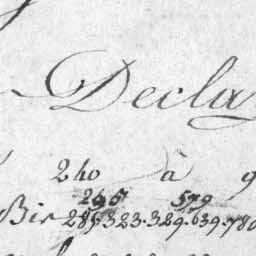 Decla
240 à 9
295 579
Bis 285.323.329.639.780